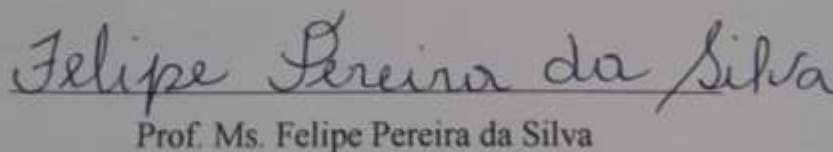 Felipe Pereira da Silva
Prof. Ms. Felipe Pereira da Silva